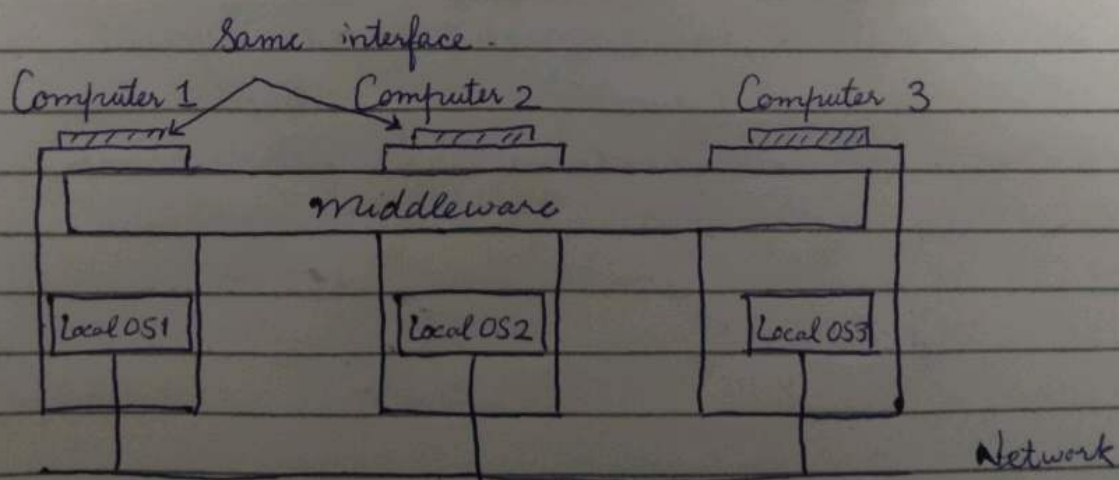 Same interface.
Computer 1 Computer 2 Computer 3
Middleware
Local OS1 Local OS2 Local OS3
Network